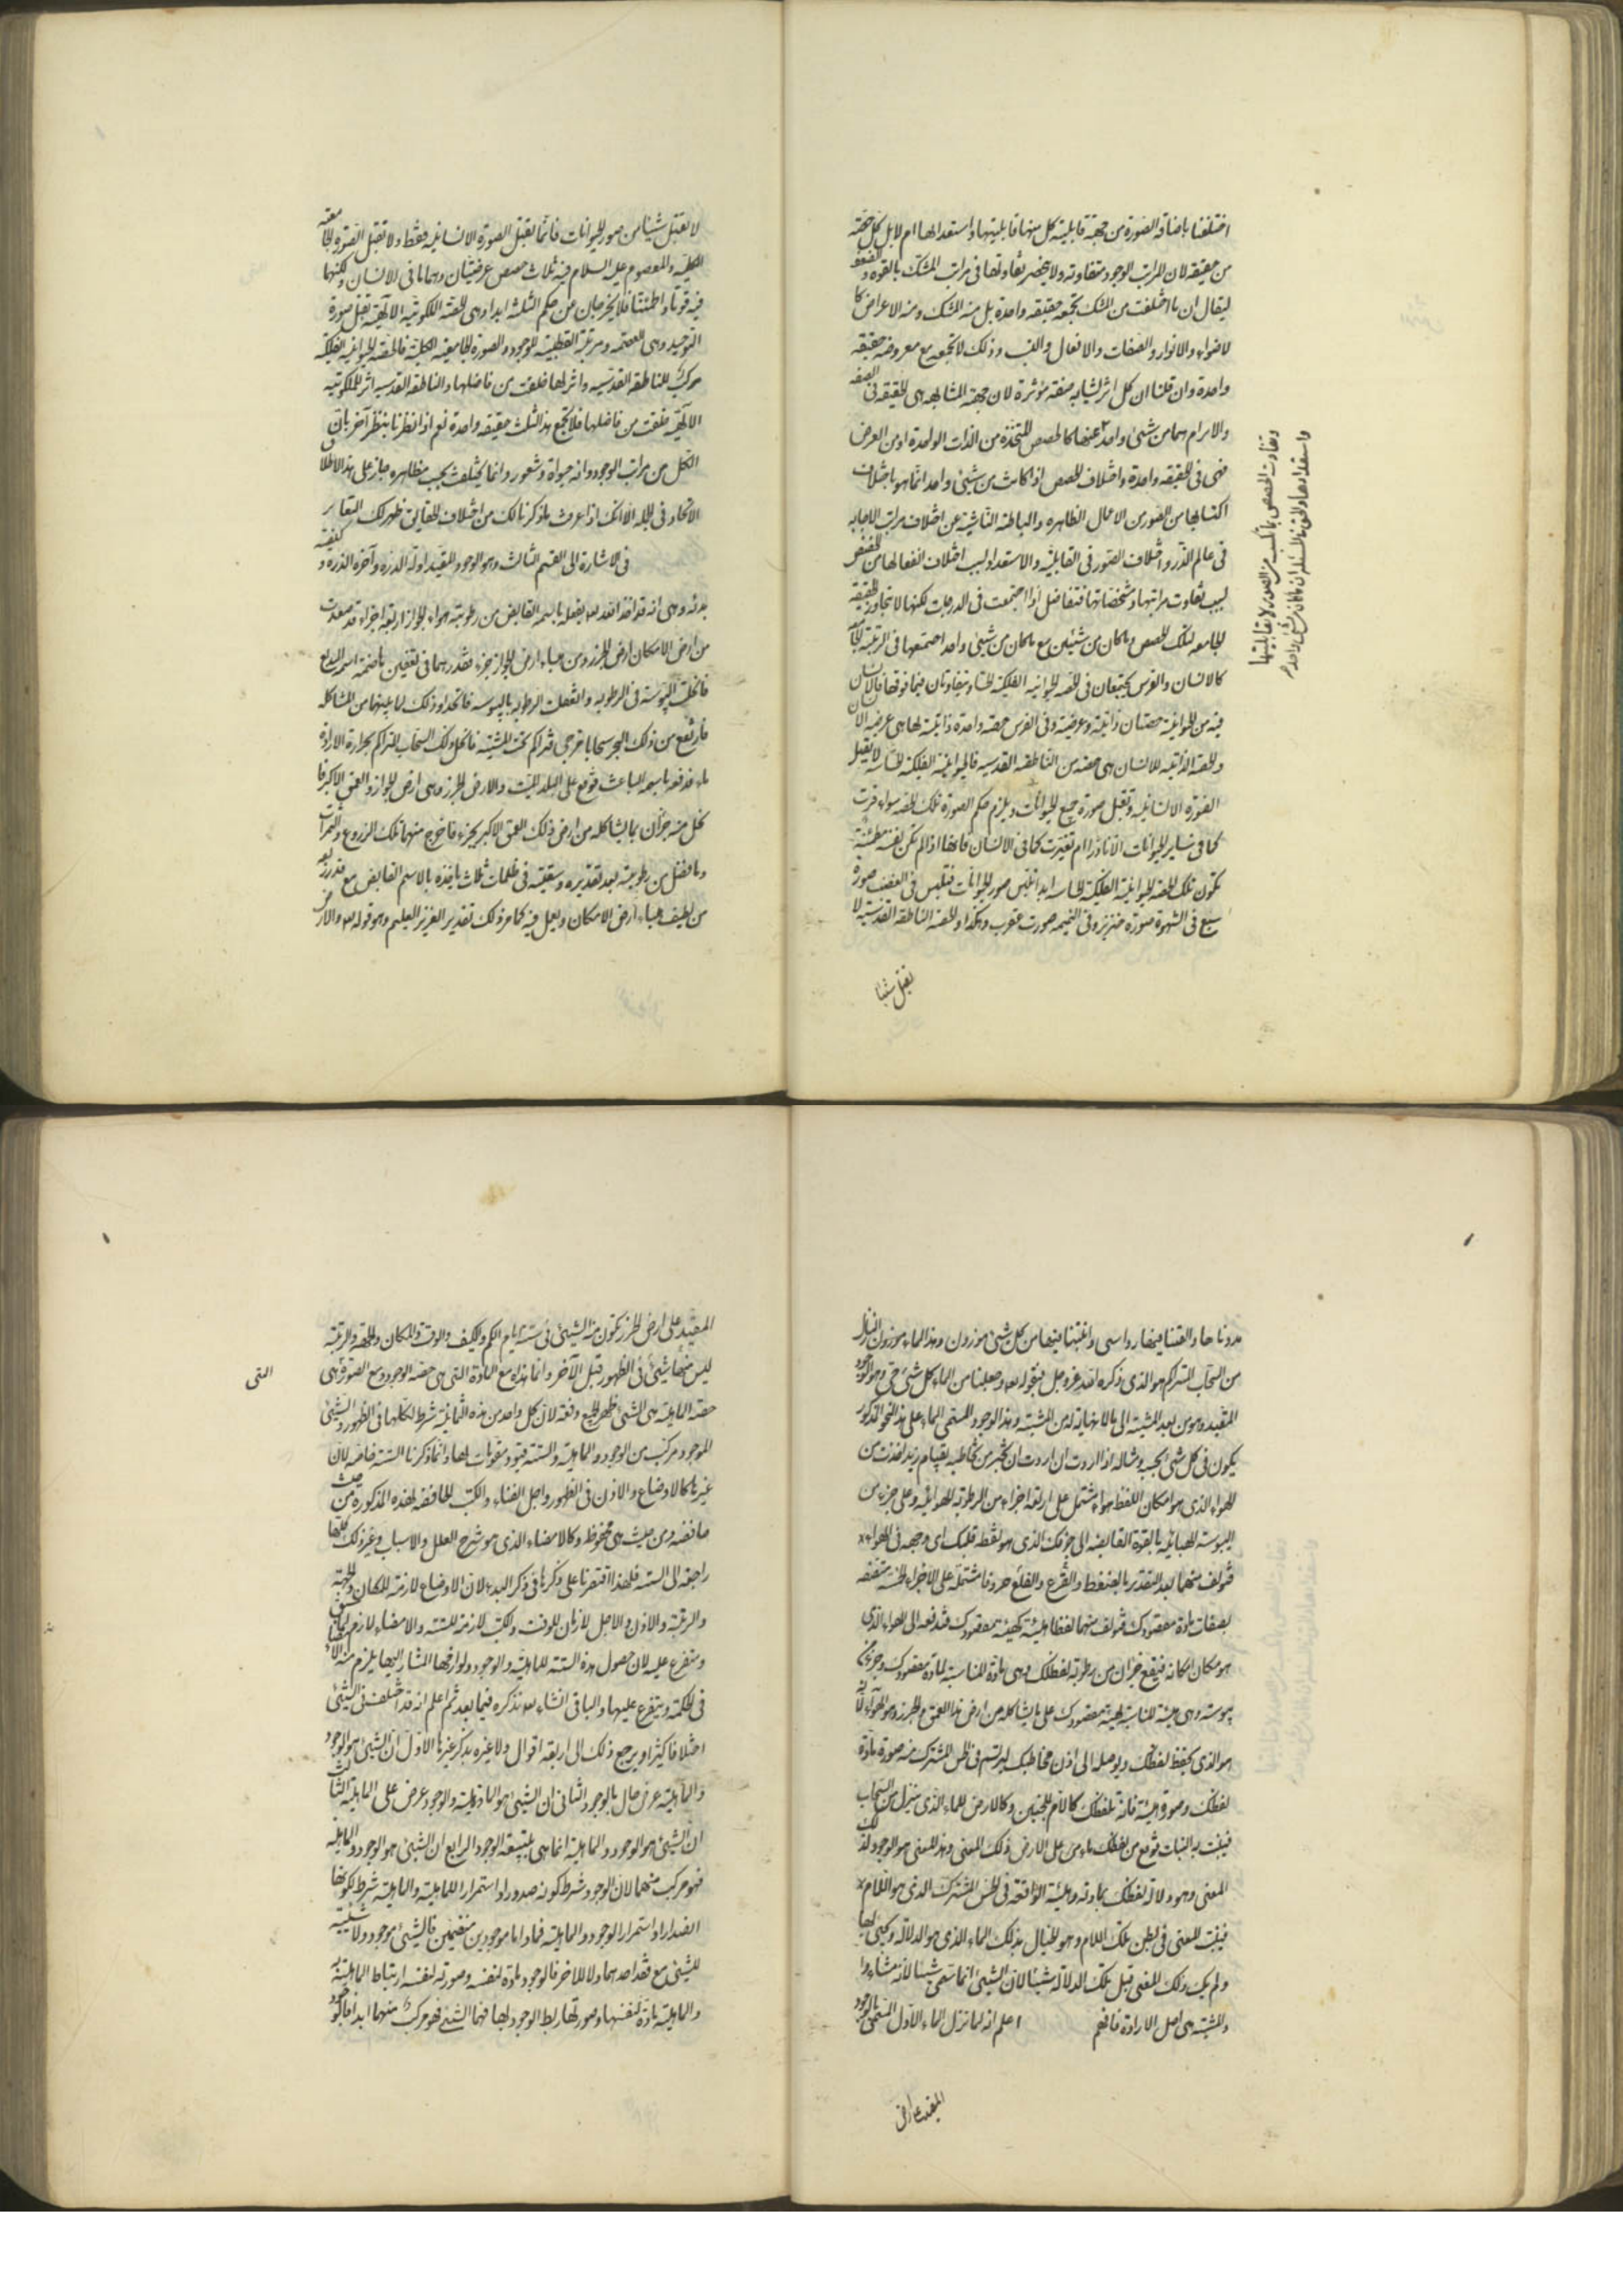 اختلفنا باضافة الصورة من جهة قابلية كل منها قابليتها واستعدادها ام لا بل كل حصة
من حقيقة لان المراتب الوجود متفاوته ولا ينحصر تفاوتها فى مراتب المشكك بالقوة والضعف
ليقال ان ما اختلفت من المشكك تجمعه حقيقة واحدة بل منه المشكك ومنه الاعراض كا
لاضواء والانوار والصفات والافعال والنسب وذلك لا تجمعه مع معروضه حقيقة
واحدة وان قلنا ان كل اثر يشابه صفة مؤثره لان جهة المشابهة هى الحقيقة فى الصفه
من شىء واحد كالحصص المتخذة من الذات الواحدة او من العرض
فهى فى الحقيقة واحدة واختلاف الحصص اذا كانت من شىء واحد انما هو باختلاف
اكتسابها من الصور من الاعمال الظاهره والباطنه الناشية عن اختلاف مراتب الاجابه
فى عالم الذر واختلاف الصور فى القابلية والاستعداد لسبب اختلاف انفعالها من المقتضى
لسبب تفاوت مراتبها ومشخصاتها فتتفاضل اذا اجتمعت فى الدرجات لكنها لا تتجاوز الحقيقة
الجامعه لتلك الحصص وما كان من شيئين مع ما كان من شىء واحد اجتمعها فى الرتبة الجامعه
كالانسان والفرس يجتمعان فى الحصه الحيوانيه الفلكية الحساسه ويتفاوتان فيما فوقها فالانسان
فيه من الحيوانية حصتان ذاتية وعرضية وفى الفرس حصة واحدة ذاتية لها هى عرضية الانسان
والحصة الذاتية للانسان هى حصه من الناطقة القدسيه فالحيوانية الفلكية الحساسه لا تقبل
الصورة الانسانيه وتقبل صورة جميع الحيوانات ويلزم حكم الصورة تلك الحصه سواء قرت
كما فى ساير الحيوانات الا نادرا ام تغيرت كما فى الانسان فانها اذا لم تكن نفسه مطمئنة
تكون تلك الحصه الحيوانية الفلكية الحساسه ابدا تلبس صور الحيوانات فتلبس فى الغضب صورة
سبع فى الشهوة صورة خنزير وفى النميمه صورت عقرب وهكذا والحصه الناطقة القدسية لا
تقبل شيئا
وتفاوت الحصص بما تلبس من الصور لا بقابليتها
لا يقبل شيئا من صور الحيوانات فانما تقبل الصورة الانسانيه فقط ولا تقبل الصورة الجامعه
الكلية والمعصوم عليه السلام فيه ثلاث حصص عرضيتان وهما ما فى الانسان ولكنها
فيه قويتا واطمئنتا فلا يخرجان من حكم الثلثه ابدا وهى الحصة الملكوتية الالهية تقبل صورة
التوحيد وهى العصمه ومرتبة القطبية للوجود والصورة الجامعية الكلية فالحصه الحيوانيه الفلكيه
مركب للناطقة القدسيه واثر لها خلقت من فاضلها والناطقه القدسيه اثر للملكوتيه
الالهية خلقت من فاضلها فلا تجمع هذه الثلث حقيقة واحدة نعم اذا نظرنا بنظر آخر بان
الكل من مراتب الوجود وانه حيوة وشعور وانما يختلف بحسب مظاهره جاز على هذا الاطلاق
الاتحاد فى الجملة الا انك اذا عرفت ما ذكرنا لك من اختلاف الحقايق ظهر لك التغاير
فى الاشارة الى القسم الثالث وهو الوجود المقيد اوله الدرة وآخره الذره وكيفية
بدئه وهى انه قد اخذ الله بفعله باسمه القابض من رطوبة هواء الجواز اربعة اجزاء قد صعدت
من ارض الامكان ارض الجرز ومن هباء ارض الجواز جزء فقدرهما فى تعفين هاضمة اسمه البديع
فانحلت اليبوسة فى الرطوبه وانعقدت الرطوبه باليبوسه فاتحدا وذلك لما بينهما من المشاكله
فارتفع من ذلك البحر سحابا مزجى فتراكم تحت المشيه فانحل ذلك السحاب المتراكم بحرارة الارادة
ماء فدفعه باسمه الباعث فوقع على البلد الميت والارض الجرز وهى ارض الجواز والعمق الاكبر فا
نحل منه جزءان بما يشاكله من ارض ذلك العمق الاكبر بجزء فاخرج منهما تلك الزروع والثمرات
وما فضل من رطوبته بعد تقديره وسقيه فى ظلمات ثلاث ياخذه بالاسم القابض مع قدر ربعه
من لطيف هباء ارض الامكان ويعمل فيه كما مر ذلك تقدير العزيز العليم وهو قوله والارض
مددناها والقينا فيها رواسى وانبتنا فيها من كل شىء موزون وهذا الماء موزون النازل
من السحاب المتراكم هو الذى ذكره الله عز وجل بقوله وجعلنا من الماء كل شىء حى وهو الوجود
المقيد وهو من بعد المشيه الى ما لا نهاية له من المشيه وهذا الوجود المسمى الماء على هذا النحو المذكور
يكون فى كل شىء بحسبه ومثاله اذا اردت ان تخبر من تخاطبه بقيام زيد اخذت من
الهواء الذى هو امكان اللفظ هواء يشتمل على اربعة اجزاء من الرطوبة الهوائية وعلى جزء من
اليبوسة الهبائية بالقوة القابضة الى جوفك الذى هو نقطة قلبك اى وجهه فى الهواء
فتولف منهما بعد التقدير بالضغط والقرع والقلع حروفا مشتملة على الاجزاء الخمسة متصفه
بصفات مادة مقصودك فتولف منهما لفظا هيئته كهيئة مقصودك فتدفعه الى الهواء الذى
هو مكان امكانه فيقع جزءان من رطوبة لفظك وهى مادة المناسبة لمادة مقصودك وجزء من
يبوسته وهى هيئته المناسبة لهيئة مقصودك على ما يشاكله من ارض هذا العمق والجرز وهو الهواء
هو الذى يحفظ لفظك ويوصله الى اذن مخاطبك ليرتسم فى الحس المشترك منه صورة مادة
لفظك وصورة هيئته فانه للفظك كالام للجنين وكالارض للماء الذى ينزل من السحاب
فينبت به النبات فوقع من لفظك ماء على الارض ذلك المعنى وهذا المعنى هو الوجود لذلك
المعنى وهو دلالة لفظك بمادته وهيئته الواقعة فى الحس المشترك الذى هو اللام
فينبت المعنى فى بطن تلك اللام وهو الخيال بذلك الماء الذى هو الدلالة ويحيى بها
ولم يك ذلك المعنى قبل تلك الدلالة شيئا لان الشىء انما سمى شيئا لانه مشاء
والمشية هى اصل الارادة فافهم اعلم انه لما نزل الماء الاول المسمى بالوجود
المقيد على ارض
المقيد على ارض الجرز تكون منه الشىء فى ستة ايام الكم والكيف والوقت والمكان والجهة والرتبة
ليس منها شىء فى الظهور قبل الآخر وانما بدئه مع المادة التى هى حصة الوجود ومع الصورة هى
التى
حصة الماهية هى الشىء ظهر الجميع دفعة لان كل واحد من هذه الثمانية شرط لكلها فى الظهور والشىء
الموجود مركب من الوجود والماهية والستة قيود ومقومات لها وانما ذكرنا الستة خاصه لان
غيرها كالاوضاع والاذن فى الظهور واجل الفناء والكتب الحافظه لهذه المذكورة من حيث
ما نفده ومن حيث هى محفوظه وكالامضاء الذى هو شرح العلل والاسباب وغير ذلك كلها
راجعه الى الستة فلهذا اقتصرنا على ذكرها فى ذكر البدء لان الاوضاع لازمة للمكان والجهة
والرتبة والاذن والاجل لازمان للوقت والكتب لازمة للستة والامضاء لازم لما سبق
ومتفرع عليه لان حصول هذه الستة للماهية والوجود ولوازمها المشار اليها يلزم منه الامضاء
فى الحكمة ويتفرع عليها والباقى انشاء الله نذكره فيما بعد ثم اعلم انه قد اختلف فى الشىء
اختلافا كثيرا ويرجع ذلك الى اربعة اقوال ولا عبره بذكر غيرها الاول ان الشىء هو الوجود
والماهية عرض حال بالوجود الثانى ان الشىء هو الماهية والوجود عرض على الماهية الثالث
ان الشىء هو الوجود والماهية انما هى بتبعية الوجود الرابع ان الشىء هو الوجود والماهية
فهو مركب منهما لان الوجود شرط كونه صدورا واستمرارا للماهية والماهية شرط لكونها
الصدارا واستمرارا الوجود والماهية فما داما موجودين منضمين فالشىء موجود ولا شيئية
للشىء مع فقد احدهما ولا للاخر فالوجود مادة لنفسه وصورته لنفسه ارتباط الماهية به
والماهية مادة لنفسها وصورتها ربط الوجود بها فهما الشىء فهو مركب منهما ابدا